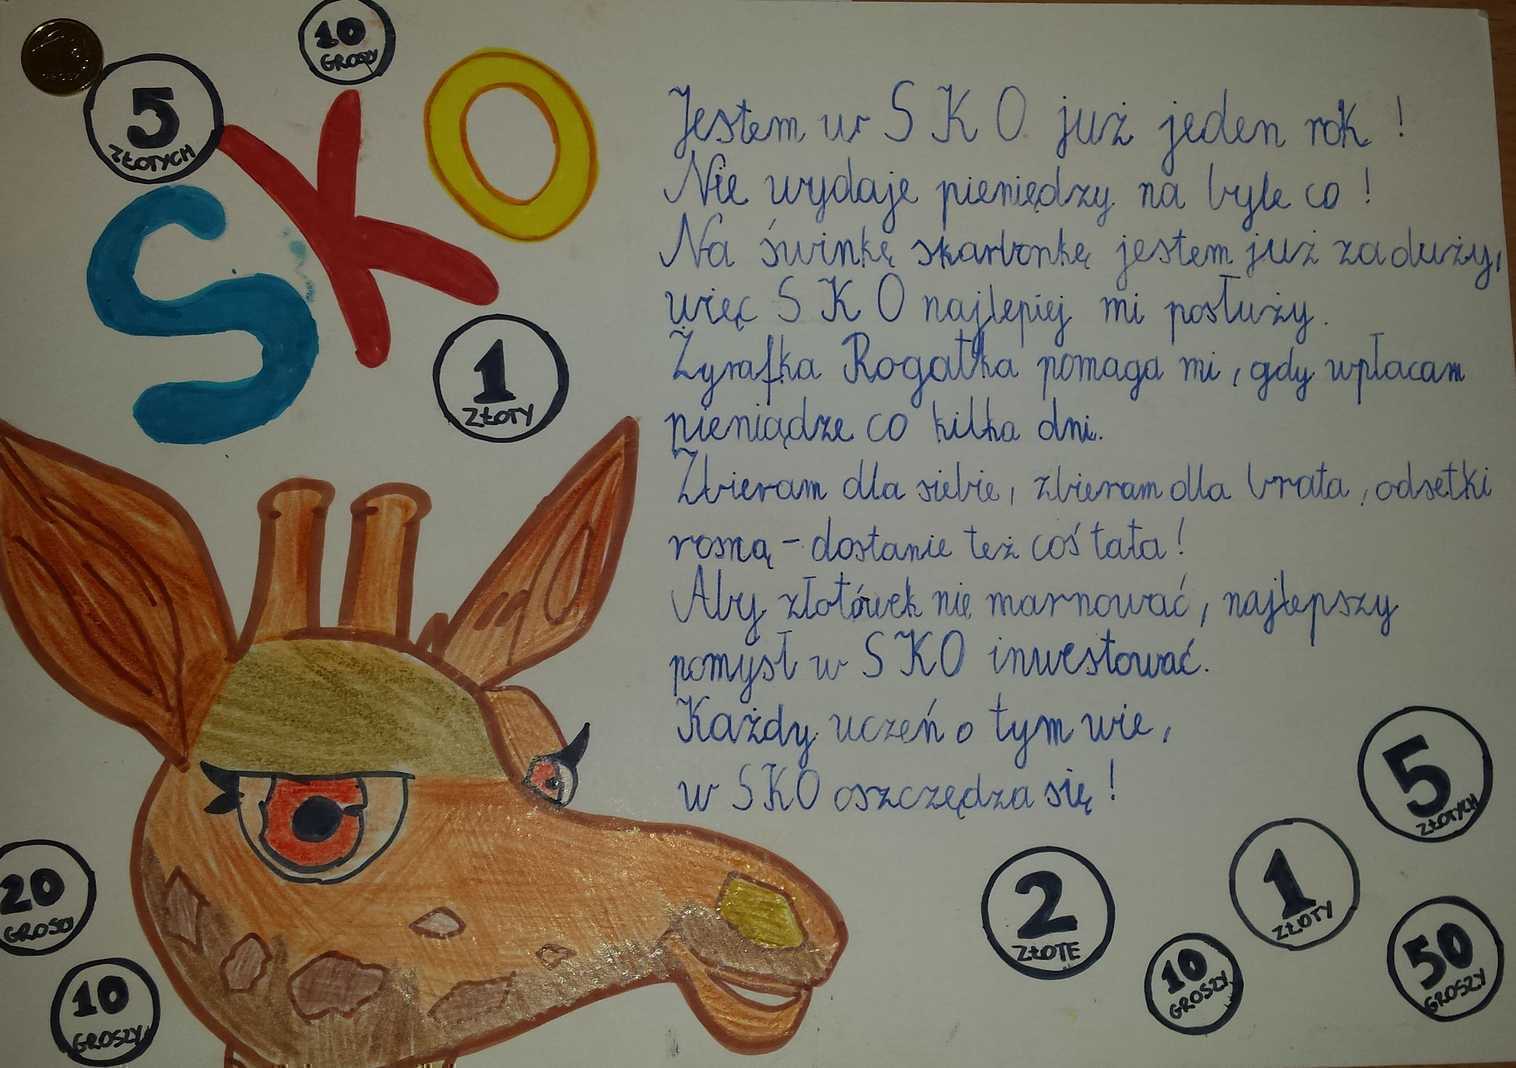 10
GROSZY
5
ZŁOTYCH
SKO
1
ZŁOTY
Jestem w SKO już jeden rok!
Nie wydaje pieniędzy na byle co!
Na świnkę skarbonkę jestem już za duży,
więc SKO najlepiej mi posłuży.
Żyrafka Rogatka pomaga mi, gdy wpłacam
pieniądze co kilka dni.
Zbieram dla siebie, zbieram dla brata, odsetki
rosną - dostanie też coś tata!
Aby złotówek nie marnować, najlepszy
pomysł w SKO inwestować.
Każdy uczeń o tym wie,
w SKO oszczędza się!
20
GROSZY
10
GROSZY
2
ZŁOTE
10
GROSZY
1
ZŁOTY
5
ZŁOTYCH
50
GROSZY